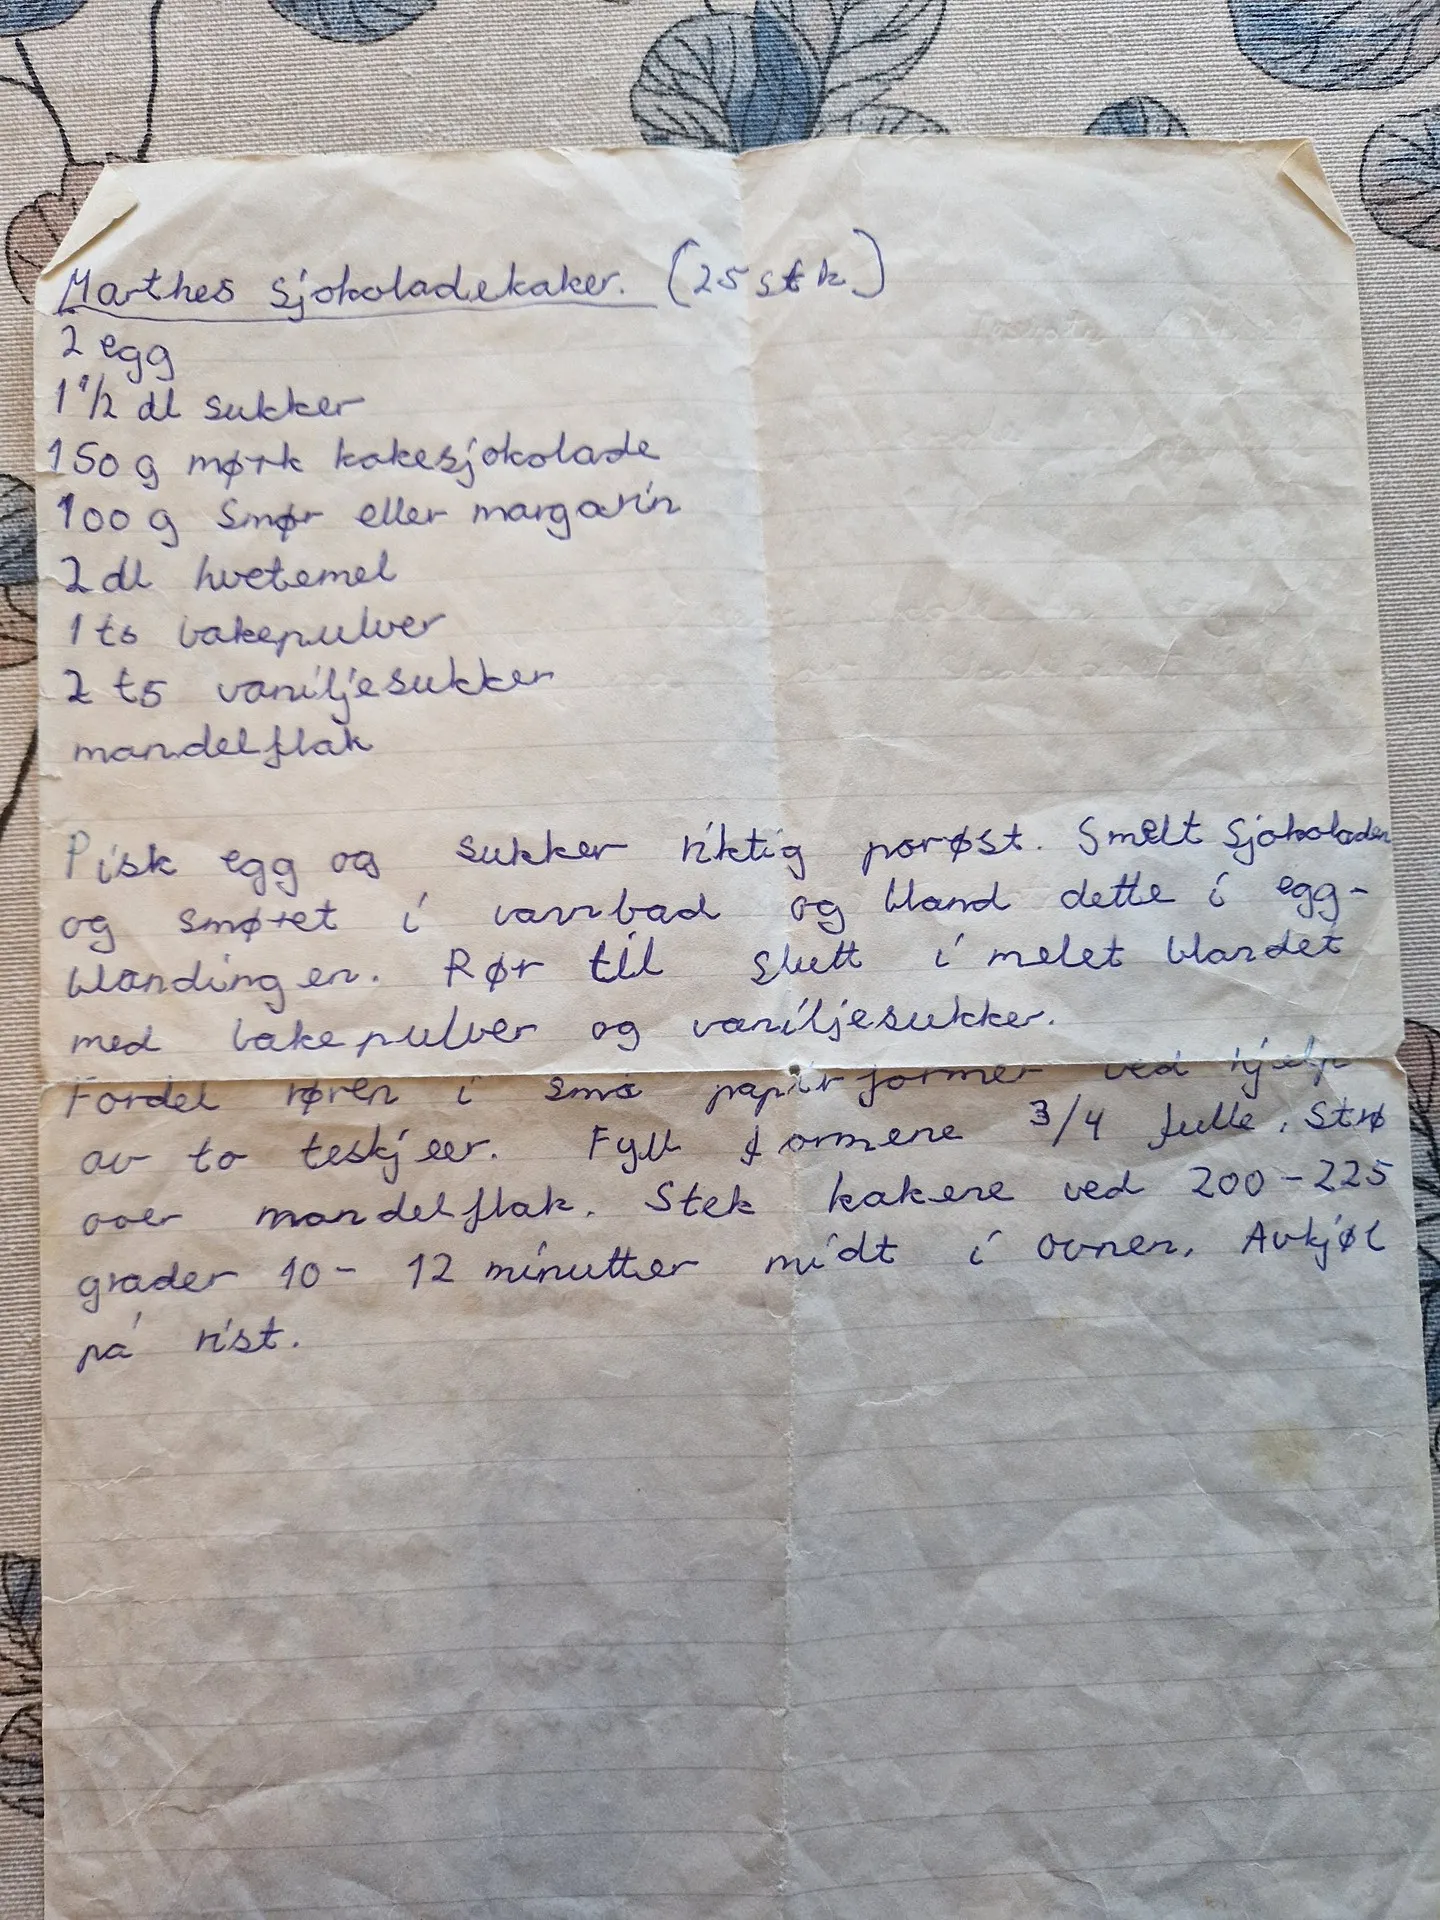 Marthes sjokoladekaker. (25 stk.)
2 egg
1 1/2 dl sukker
150 g mørk kakesjokolade
100 g smør eller margarin
2 dl hvetemel
1 ts bakepulver
2 ts vaniljesukker
mandelflak
Pisk egg og sukker riktig porøst. Smelt sjokoladen
og smøret i vannbad og bland dette i egg-
blandingen. Rør til slutt i melet blandet
med bakepulver og vaniljesukker.
Fordel røren i små papirformer ved hjelp
av to teskjeer. Fyll formene 3/4 fulle. Strø
over mandelflak. Stek kakene ved 200-225
grader 10-12 minutter midt i ovnen. Avkjøl
på rist.